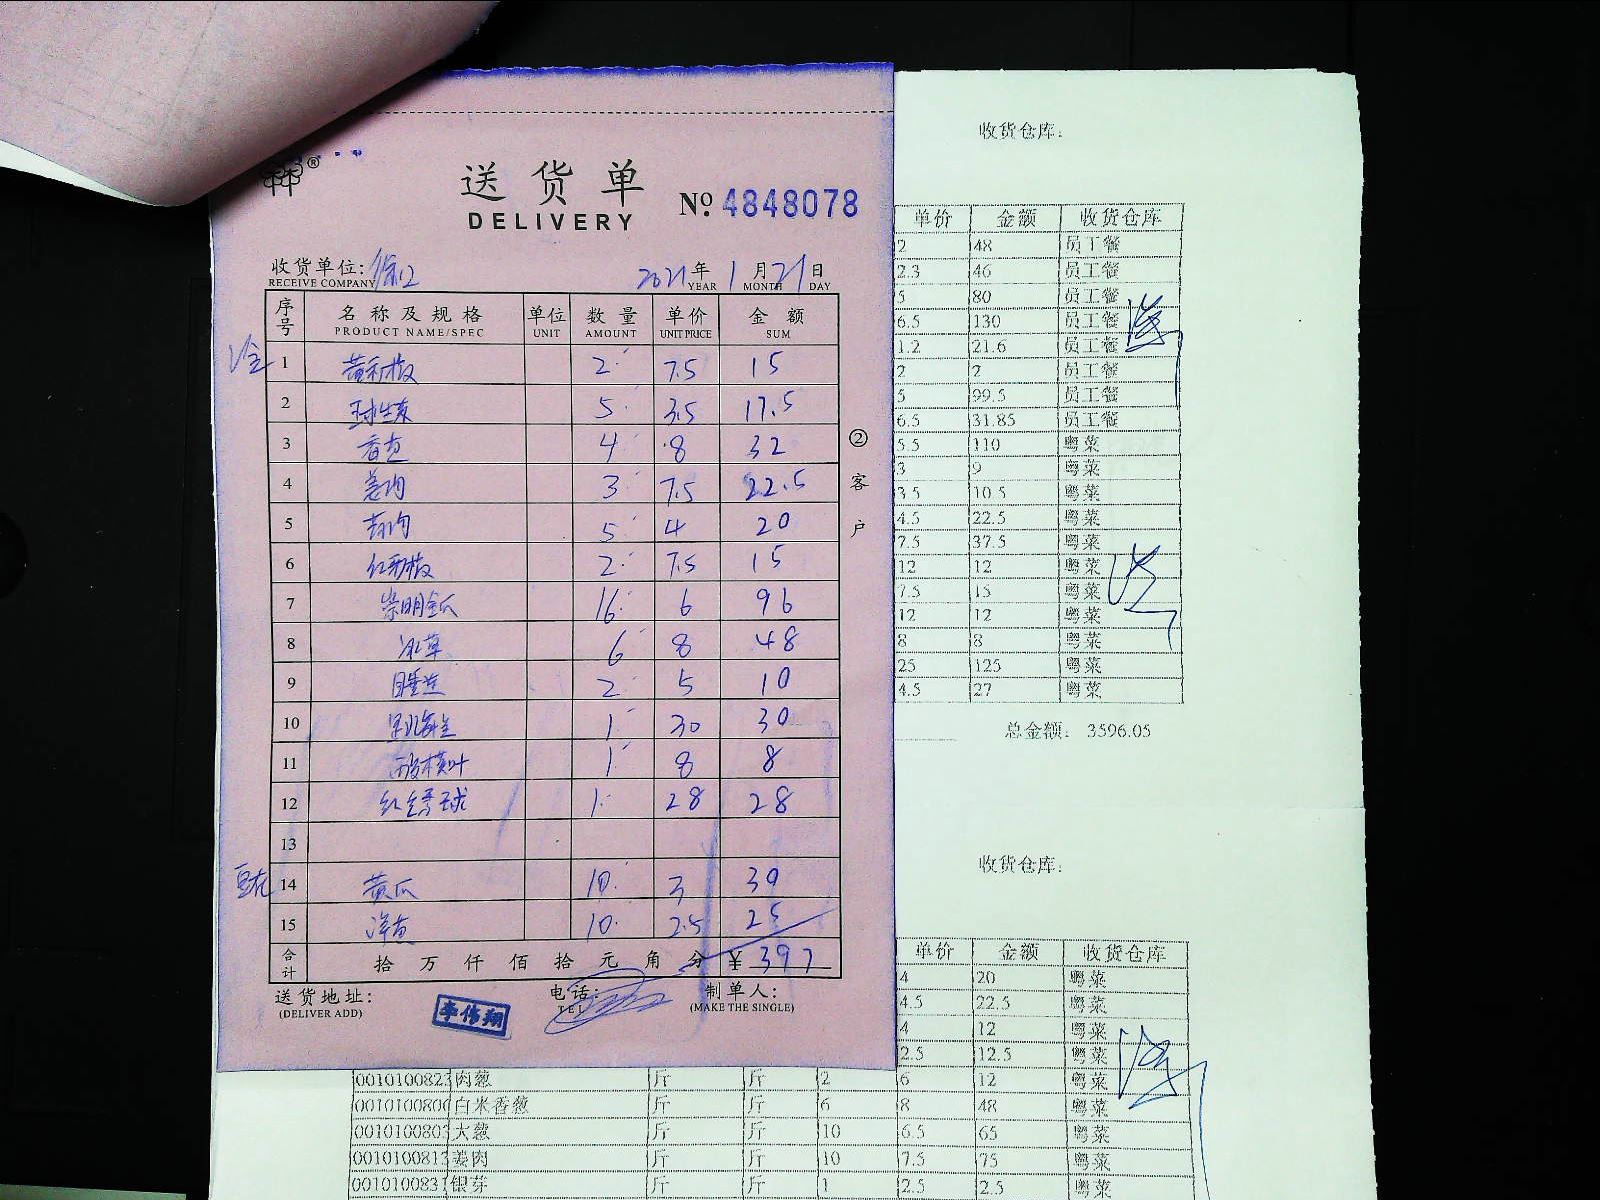 送货单
DELIVERY
No. 4848078
收货单位:
RECEIVE COMPANY
2021 年 1 月 21 日
YEAR MONTH DAY
序号 名称及规格 单位 数量 单价 金额
PRODUCT NAME/SPEC UNIT AMOUNT UNIT PRICE SUM
1 黄彩椒 2 7.5 15
2 球生菜 5 3.5 17.5
3 香芹 4 8 32
4 姜肉 3 7.5 22.5
5 5 4 20
6 红彩椒 2 7.5 15
7 崇明金瓜 16 6 96
8 冰草 6 8 48
9 睡莲 2 5 10
10 1 30 30
11 1 8 8
12 红绣球 1 28 28
13
豆花 14 黄瓜 10 3 30
15 10 2.5 25
合计 拾 万 仟 佰 拾 元 角 分 ¥ 397
送货地址: 电话: 制单人:
(DELIVER ADD) TEL (MAKE THE SINGLE)
李伟翔
② 客户
收货仓库:
单价 金额 收货仓库
2 48 员工餐
2.3 46 员工餐
5 80 员工餐
6.5 130 员工餐
1.2 21.6 员工餐
2 2 员工餐
5 99.5 员工餐
6.5 31.85 员工餐
5.5 110 粤菜
3 9 粤菜
3.5 10.5 粤菜
4.5 22.5 粤菜
7.5 37.5 粤菜
12 12 粤菜
7.5 15 粤菜
12 12 粤菜
8 8 粤菜
25 125 粤菜
4.5 27 粤菜
总金额: 3596.05
收货仓库:
单价 金额 收货仓库
4 20 粤菜
4.5 22.5 粤菜
4 12 粤菜
2.5 12.5 粤菜
0010100823 肉葱 斤 斤 2 6 12 粤菜
0010100800 白米香葱 斤 斤 6 8 48 粤菜
0010100803 大葱 斤 斤 10 6.5 65 粤菜
0010100813 姜肉 斤 斤 10 7.5 75 粤菜
0010100831 银芽 斤 斤 1 2.5 2.5 粤菜